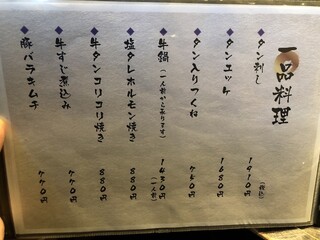 一品料理
(税込)
◆タン刺し 1910円
◆タンユッケ 1680円
◆タン入りつくね 750円
◆牛鍋(一人前から承ります) 1430円(一人前)
◆塩タレホルモン焼き 880円
◆牛タンコリコリ焼き 880円
◆牛すじ煮込み 770円
◆豚バラキムチ 770円